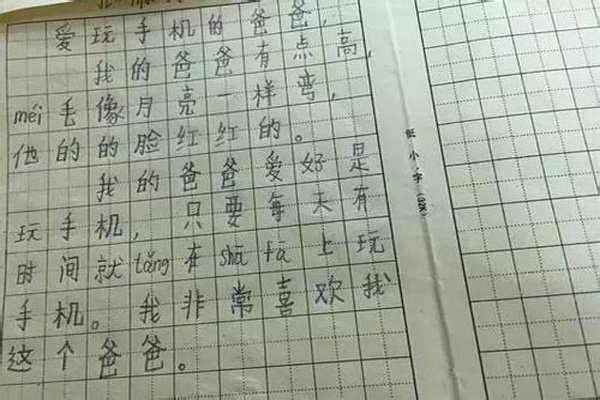 爱玩手机的爸爸,
我的爸爸有点高,
méi毛像月亮一样弯,
他的的脸红红的。
我的爸爸爱好是
玩手机,只要每天有
时间就tǎng在shā fā上玩
手机。我非常喜欢我
这个爸爸。
小字